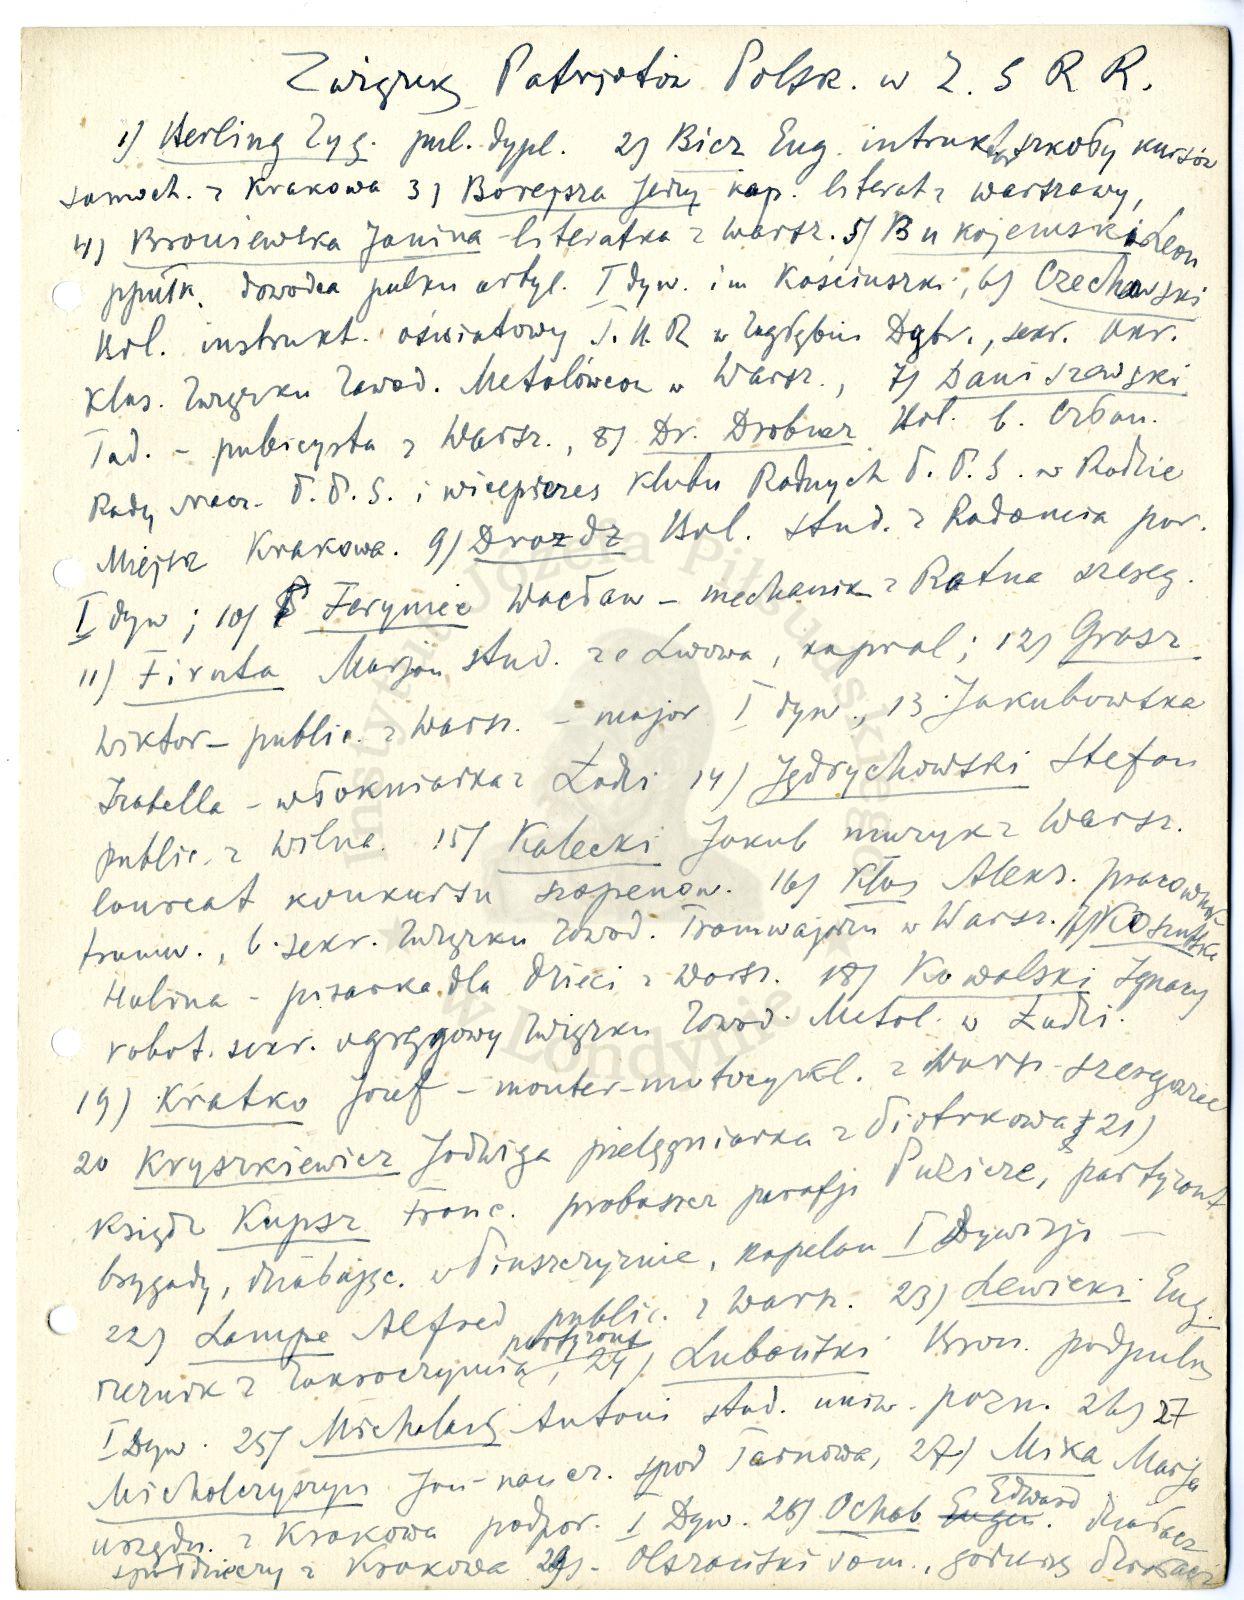 Związek Patrjotów Polsk. w Z. S R R.
1) Herling Zyg. puł. dypl. 2) Bicz Eug. intrukt. szkoły kursów
samoch. z Krakowa 3) Borejsza Jerzy kap. literat z Warszawy,
4) Broniewska Janina - literatka z Warsz. 5) Bukojemski Leon
ppułk. dowódca pułku artyl. I dyw. im Kościuszki, 6) Czechowski
Wł. instrukt. oświatowy T.U.R w Zagłębiu Dąbr., sekr. Okr.
Klas. Związku Zawod. Metalowców w Warsz., 7) Daniszewski
Tad. - publicysta z Warsz., 8) Dr. Drobner Bol. b. człon.
Rady Nacz. P.P.S. i wiceprezes Klubu Radnych P.P.S. w Radzie
Miejsk Krakowa. 9) Drozdz Bol. stud. z Radomia por.
I dyw; 10) Feryniec Wacław - mechanik z Ratna szereg.
11) Firuta Marjan stud. ze Lwowa, kapral; 12) Grosz
Wiktor - public. z Warsz. - major I dyw., 13 Jakubowska
Izabella - włókniarka z Łodzi 14) Jędrychowski Stefan
public. z Wilna. 15) Kalecki Jakub muzyk z Warsz.
laureat konkursu szopenow. 16) Kłos Aleks. pracownik
tramw., b. sekr. Związku Zawod. Tramwajarzy w Warsz. 17) Koszutska
Halina - pisarka dla dzieci z Warsz. 18) Kowalski Ignacy
robot. sekr. okręgowy Związku Zawod. Metal. w Łodzi.
19) Kratko Józef - monter-motocykl. z Warsz - szeregowiec
20 Kryszkiewicz Jadwiga pielęgniarka z Piotrkowa, 21)
Ksiądz Kupsz Franc. proboszcz parafji Pulicze, partyzant
brygady, działając. w Pińszczyznie, kapelan I Dywizji -
22) Lampe Alfred public. z Warsz. 23) Lewicki Eug.
rzeźnik z Zakroczymia, partyzant, 24) Lubański Bron. podpułk
I Dyw. 25) Michalak Antoni stud. uniw. pozn. 26) 27
Micholczyszyn Jan - naucz. spod Tarnowa, 27) Mika Marja
urzędn. z Krakowa podpor. I Dyw. 28) Ochab Eugen. Edward działacz
spółdzielczy z Krakowa 29) - Olszański Tom., górnik, działacz
Instytut Józefa Piłsudskiego
w Londynie